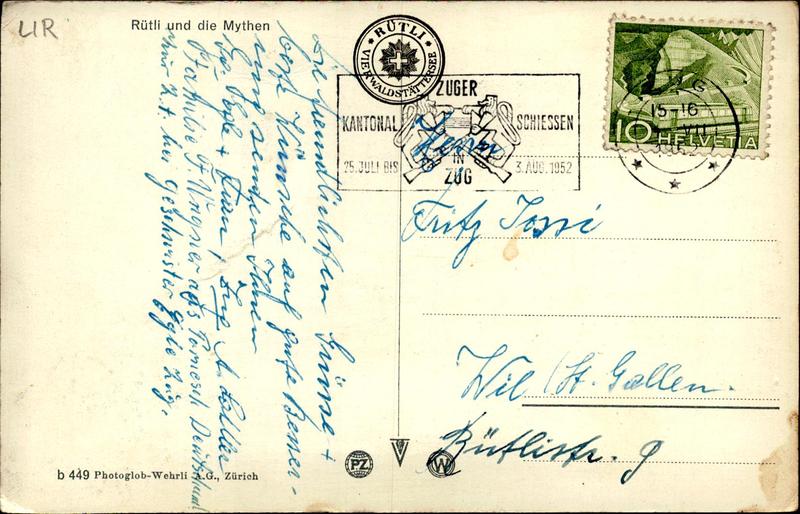 UR
Rütli und die Mythen
RÜTLI
VIERWALDSTÄTTERSEE
ZUGER
KANTONAL SCHIESSEN
25. JULI BIS IN 3. AUG. 1952
ZUG
ZUG
15-16
VII
10 HELVETIA
Die freundlichsten Grüsse +
beste Wünsche auf gute Besser-
ung senden Ihnen
Familie
Deutschland
z.Zt. bei Geschwister Zug.
Herrn
Fritz Jossi
Wil (St. Gallen.
Rütlistr. 9
b 449 Photoglob-Wehrli A.G., Zürich
PZ
W